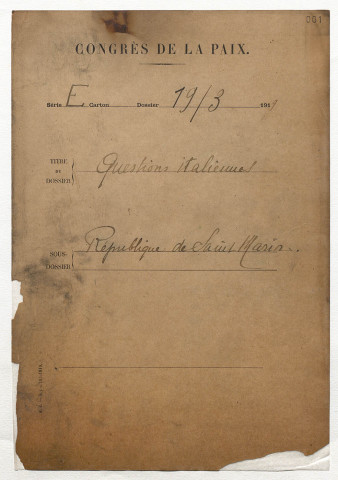 001
CONGRÈS DE LA PAIX.
Série E Carton Dossier 19/3 191
TITRE DU DOSSIER Questions Italiennes
SOUS-DOSSIER République de Saint Marin.